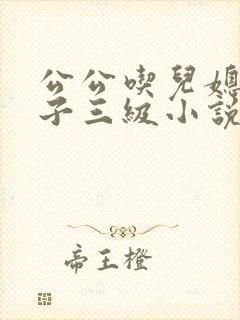 公公喫兒媳
子三級小說
帝王橙